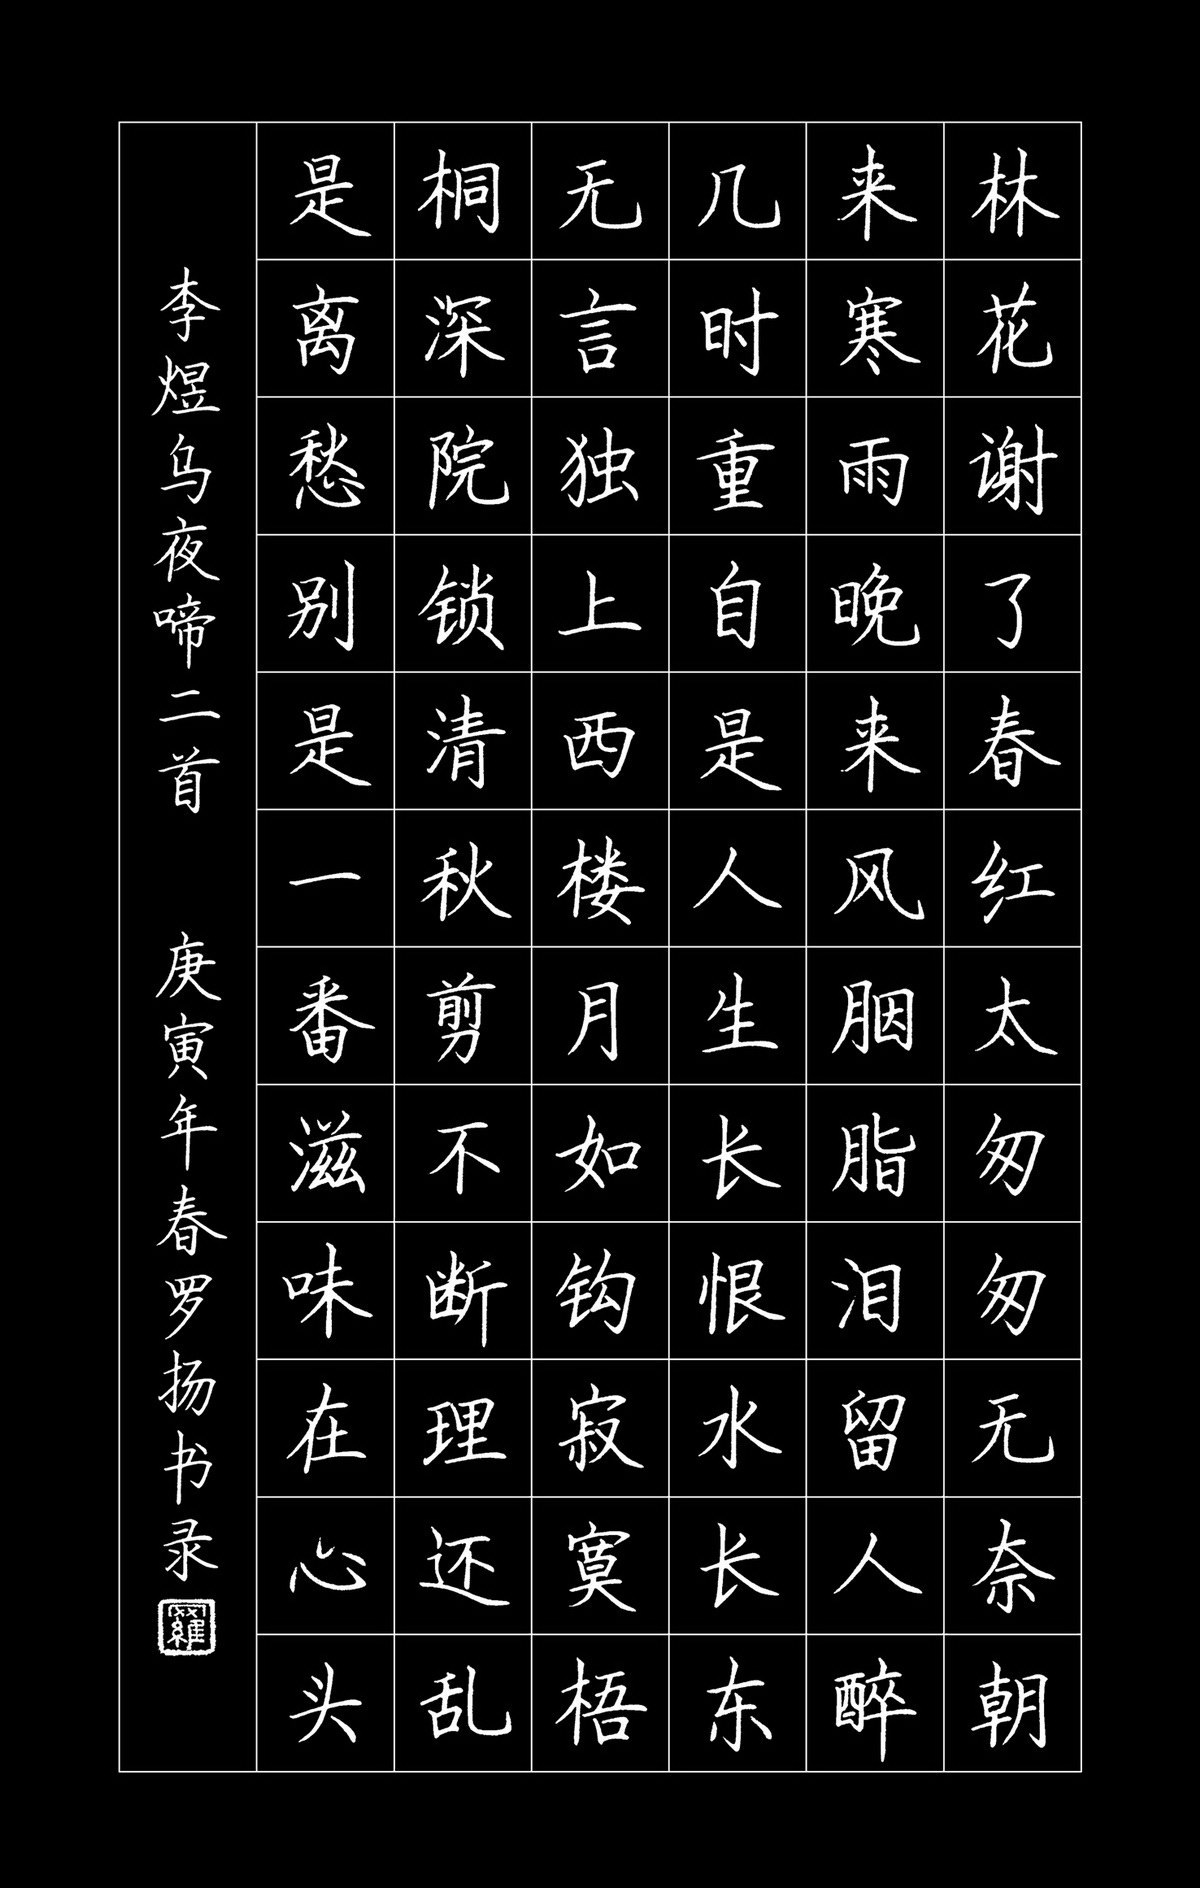 林花谢了春红太匆匆无奈朝
来寒雨晚来风胭脂泪留人醉
几时重自是人生长恨水长东
无言独上西楼月如钩寂寞梧
桐深院锁清秋剪不断理还乱
是离愁别是一番滋味在心头
李煜乌夜啼二首 庚寅年春罗扬书录
羅